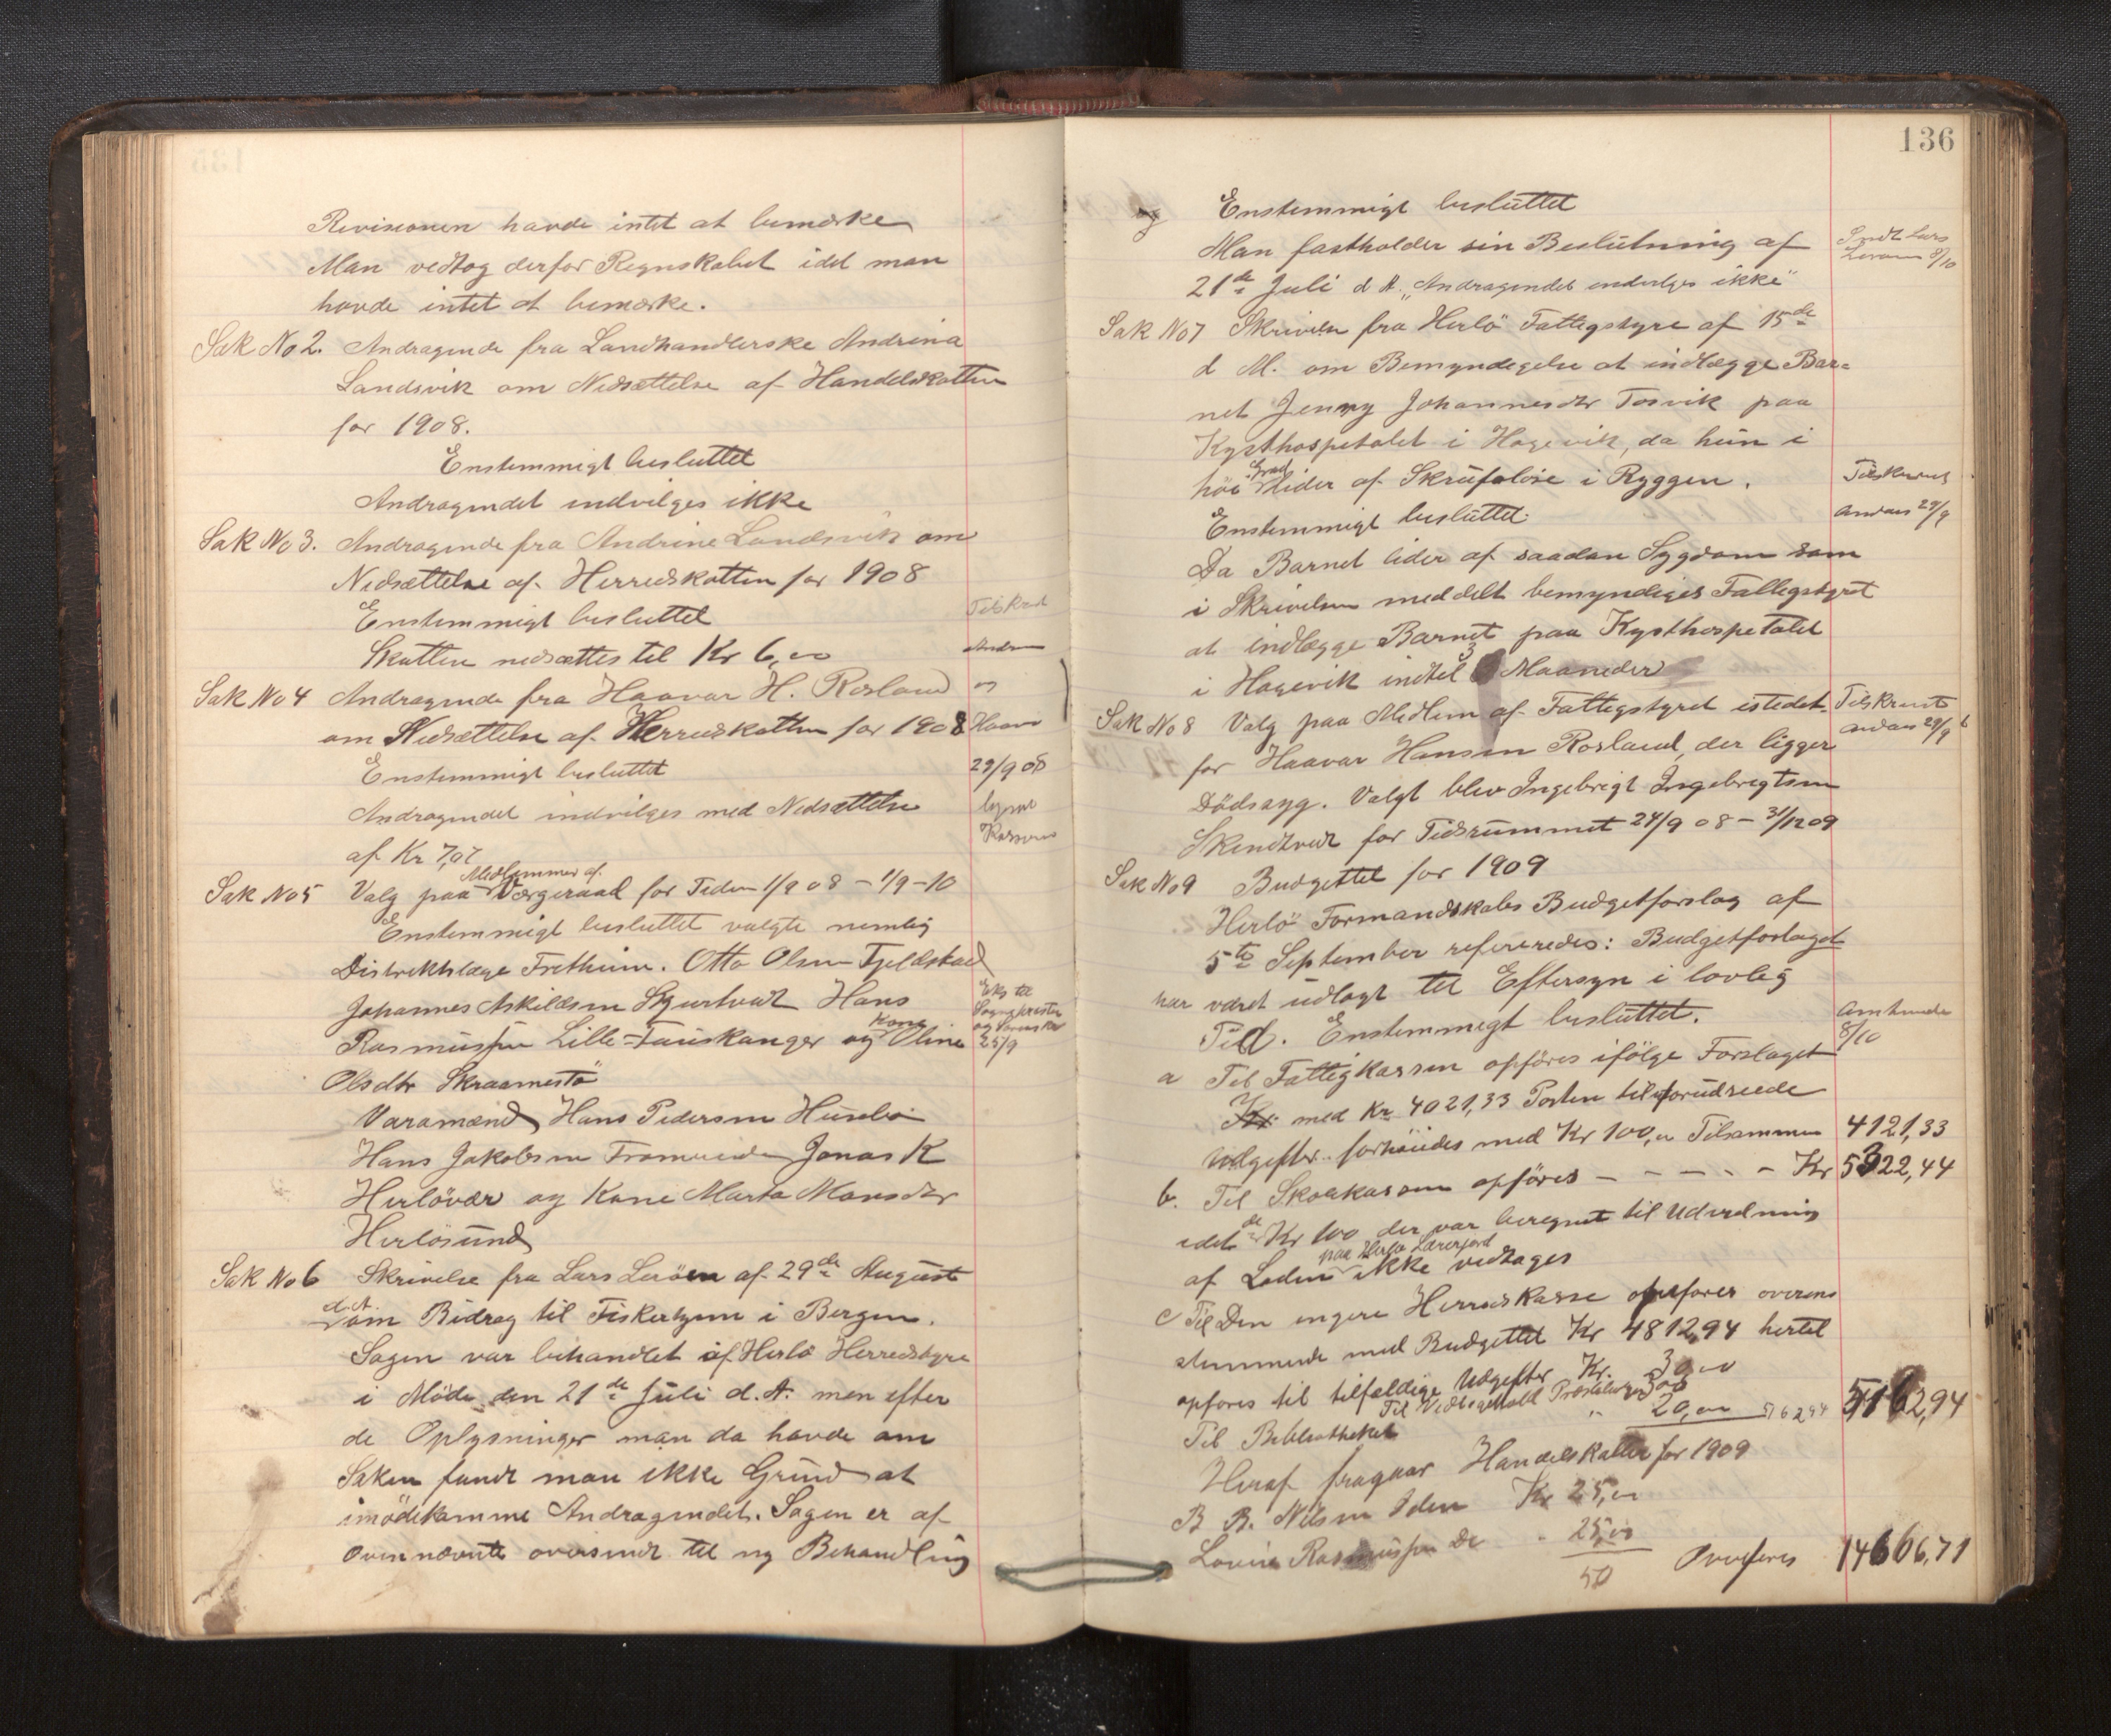 Revisionen havde intet at bemærke
Man vedtog derfor Regnskabet idet man
havde intet at bemærke.
Sak No 2. Andragende fra Landhandlerske Andrina
Landsvik om Nedsættelse af Handelskatten
for 1908.
Enstemmigt besluttet
Andragendet indvilges ikke
Sak No 3. Andragende fra Andrine Landsvik om
Nedsættelse af Herredskatten for 1908
Enstemmigt besluttet
Skatten nedsættes til Kr 6,00
Tilskrevet
Andrine
Sak No 4 Andragende fra Haavar H. Rosland
om Nedsættelse af Herredskatten for 1908
Enstemmigt besluttet
Andragendet indvilges med Nedsættelse
af Kr 7,07
og
Haavar
29/9 08
Kasseren
Sak No 5 Valg paa Medlemmer af Værgeraad for Tiden 1/9 08 – 1/9 – 10
Enstemmigt besluttet valgte nemlig
Distriktslæge Fretheim. Otto Olsen Fjeldstad
Johannes Askildsen Skjurtveit Hans
Rasmussen Lille-Tauskanger og Kone Oline
Olsdtr Skraamestø
Eks til
Sognepresten
og
25/9
Varamænd Hans Pedersen Husebø
Hans Jakobsen Fromreide Jonas K
Herløvær og Kone Marta Monsdtr
Herløsund
Sak No 6 Skrivelse fra Lars Lerøen af 29de August
d. A. om Bidrag til Fiskerhjem i Bergen.
Sagen var behandlet af Herlø Herredstyre
i Møde den 21de Juli d. A. men efter
de Oplysninger man da havde om
Saken fandt man ikke Grund at
imødekomme Andragendet. Sagen er af
Ovennævnte oversendt til ny Behandling
136
og Enstemmigt besluttet
Man fastholder sin Beslutning af
21de Juli d A. „Andragendet indvilges ikke"
Sendt Lars
Lerøen 8/10
Sak No 7 Skrivelse fra Herlø Fattigstyre af 15de
d M. om Bemyndigelse at indlægge Bar=
net Jenny Johannesdtr Tosvik paa
Kysthospitalet i Hagevik, da hun i
høi Grad lider af Skrufuløse i Ryggen.
Enstemmigt besluttet
Tilskrevet
29/9
Da Barnet lider af saadan Sygdom som
i Skrivelsen meddelt bemyndiges Fattigstyret
at indlægge Barnet paa Kysthospitalet
i Hagevik indtil 3 Maaneder
Sak No 8 Valg paa Medlem af Fattigstyret istedet
for Haavar Hansen Rosland, der ligger
Dødssyg. Valgt blev Ingebrigt Ingebrigtsen
Skendtveit for Tidsrummet 24/9 08 – 31/12 09
Tilskrevet
29/9
Sak No 9 Budgettet for 1909
Herlø Formandskabs Budgetforslag af
5te September refereredes: Budgetforslaget
har været udlagt til Eftersyn i lovlig
Tid. Enstemmigt besluttet.
Amtmanden
8/10
a Til Fattigkassen opføres ifølge Forslaget
Kr med Kr 4021,33 Posten til uforudseede
Udgifter forhøiedes med Kr 100,00 Tilsammen 4121,33
b. Til Skolekassen opføres – – – – – Kr 5322,44
idet de Kr 100 der var beregnet til Udvidning
af Loden paa Herlø Lærerjord ikke vedtages
c Til Den engere Herredskasse opføres overens
stemmende med Budgettet Kr 4812,94 hertil
opføres til tilfældige Udgifter Kr. 30,00
Til Vedligehold Præsteboliger 300
Til Bibliotheket " 20,00 5162,94 5162,94
Heraf fragaar Handelskatter for 1909
B B. Nilsen Iden Kr 25,00
Lovise Rasmussen Do " 25,00
50
Overføres 14606,71